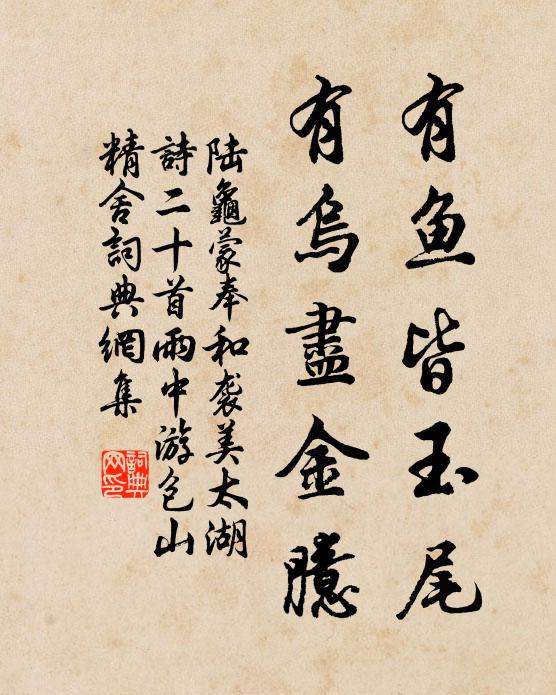 有鱼皆玉尾
有烏盡金臆
陆龜蒙奉和袭美太湖
詩二十首雨中游包山
精舍詞典網集
詞典
网印